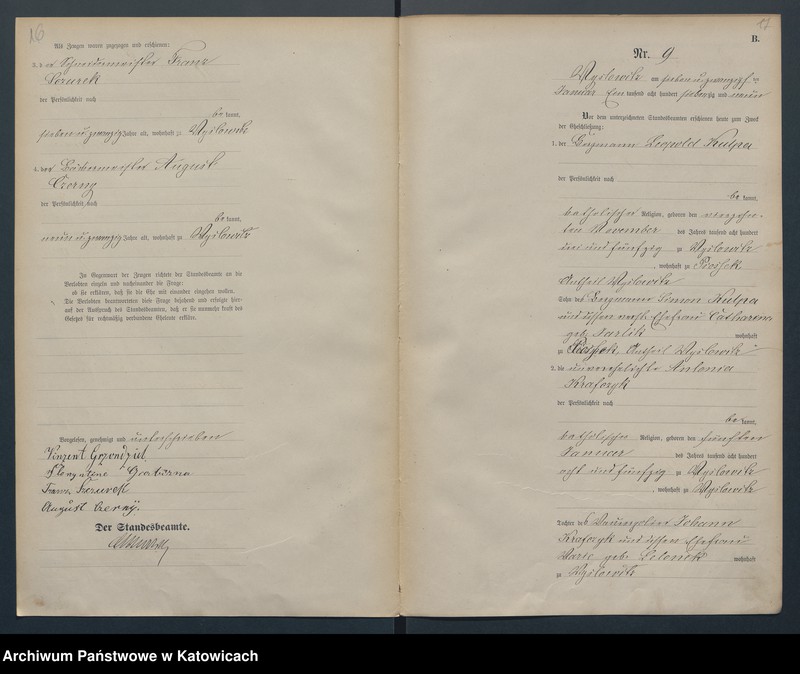 16
Als Zeugen waren zugezogen und erschienen:
3. der Schneidermeister Franz
der Persönlichkeit nach
be kannt,
sieben u zwanzig Jahre alt, wohnhaft zu Myslowitz
4. der August
Czerny
der Persönlichkeit nach
be kannt,
neun u zwanzig Jahre alt, wohnhaft zu Myslowitz
In Gegenwart der Zeugen richtete der Standesbeamte an die
Verlobten einzeln und nacheinander die Frage:
ob sie erklären, daß sie die Ehe mit einander eingehen wollen.
Die Verlobten beantworteten diese Frage bejahend und erfolgte hier-
auf der Ausspruch des Standesbeamten, daß er sie nunmehr kraft des
Gesetzes für rechtmäßig verbundene Eheleute erkläre.
Vorgelesen, genehmigt und unterschrieben
Vinzent
Franz
August Czerny.
Der Standesbeamte.
17
B.
Nr. 9
Myslowitz am sieben u. zwanzigsten
Januar Ein tausend acht hundert siebenzig und neun
Vor dem unterzeichneten Standesbeamten erschienen heute zum Zweck
der Eheschließung:
1. der Bergmann Leopold Kulpa
der Persönlichkeit nach
be kannt,
katholischer Religion, geboren den
ten November des Jahres tausend acht hundert
und fünfzig zu Myslowitz
, wohnhaft zu
Antheil Myslowitz
Sohn des Bergmann Simon Kulpa
und dessen Ehefrau Catharina
geb. wohnhaft
zu Antheil Myslowitz
2. die unverehelichte Antonia
Krafczyk
der Persönlichkeit nach
be kannt,
katholischer Religion, geboren den fünften
Januar des Jahres tausend acht hundert
acht und fünfzig zu Myslowitz
, wohnhaft zu Myslowitz
Tochter des Johann
Krafczyk und dessen Ehefrau
Marie geb. wohnhaft
zu Myslowitz
Archiwum Państwowe w Katowicach